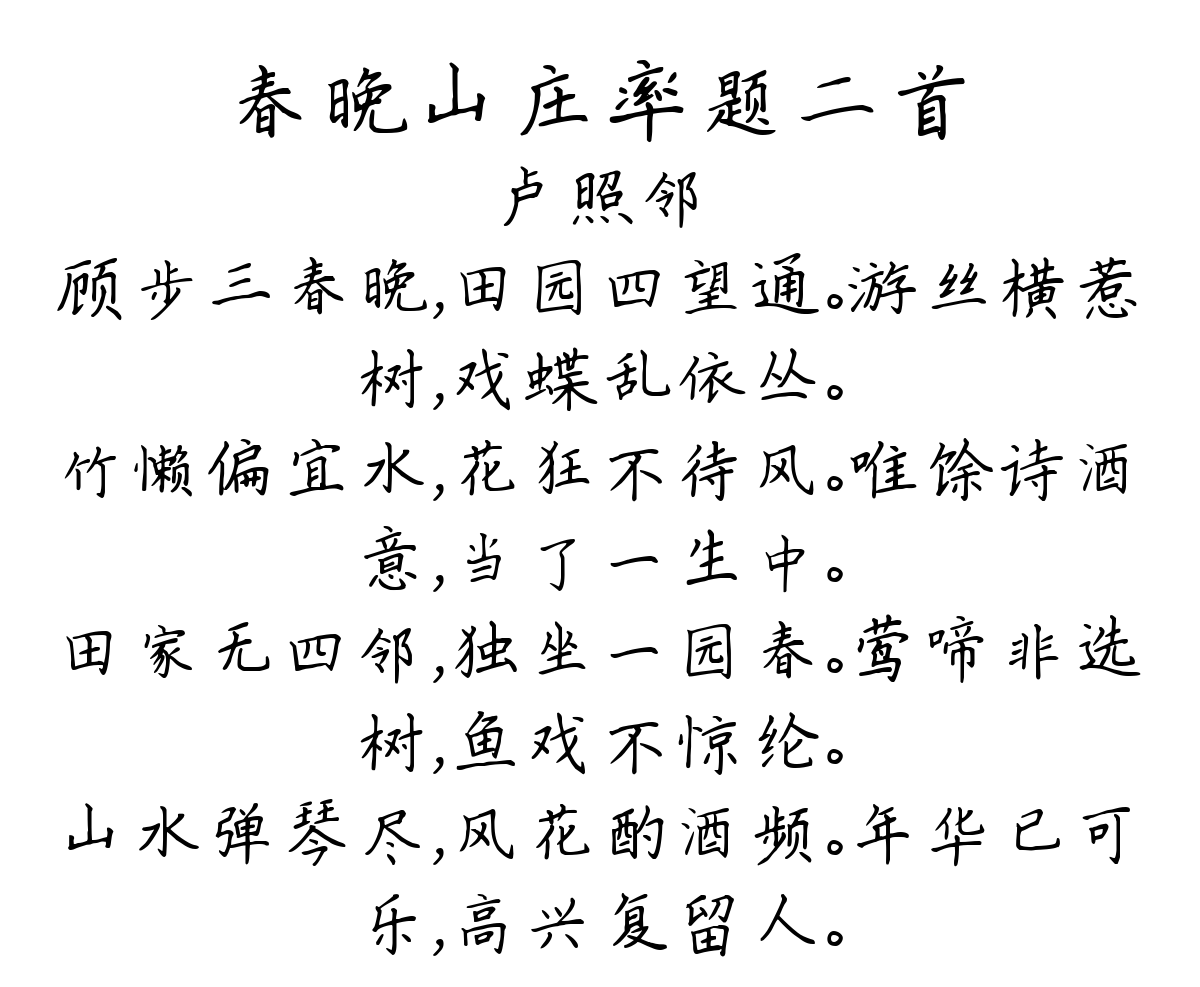 春晚山庄率题二首
卢照邻
顾步三春晚,田园四望通。游丝横惹
树,戏蝶乱依丛。
竹懒偏宜水,花狂不待风。唯馀诗酒
意,当了一生中。
田家无四邻,独坐一园春。莺啼非选
树,鱼戏不惊纶。
山水弹琴尽,风花酌酒频。年华已可
乐,高兴复留人。